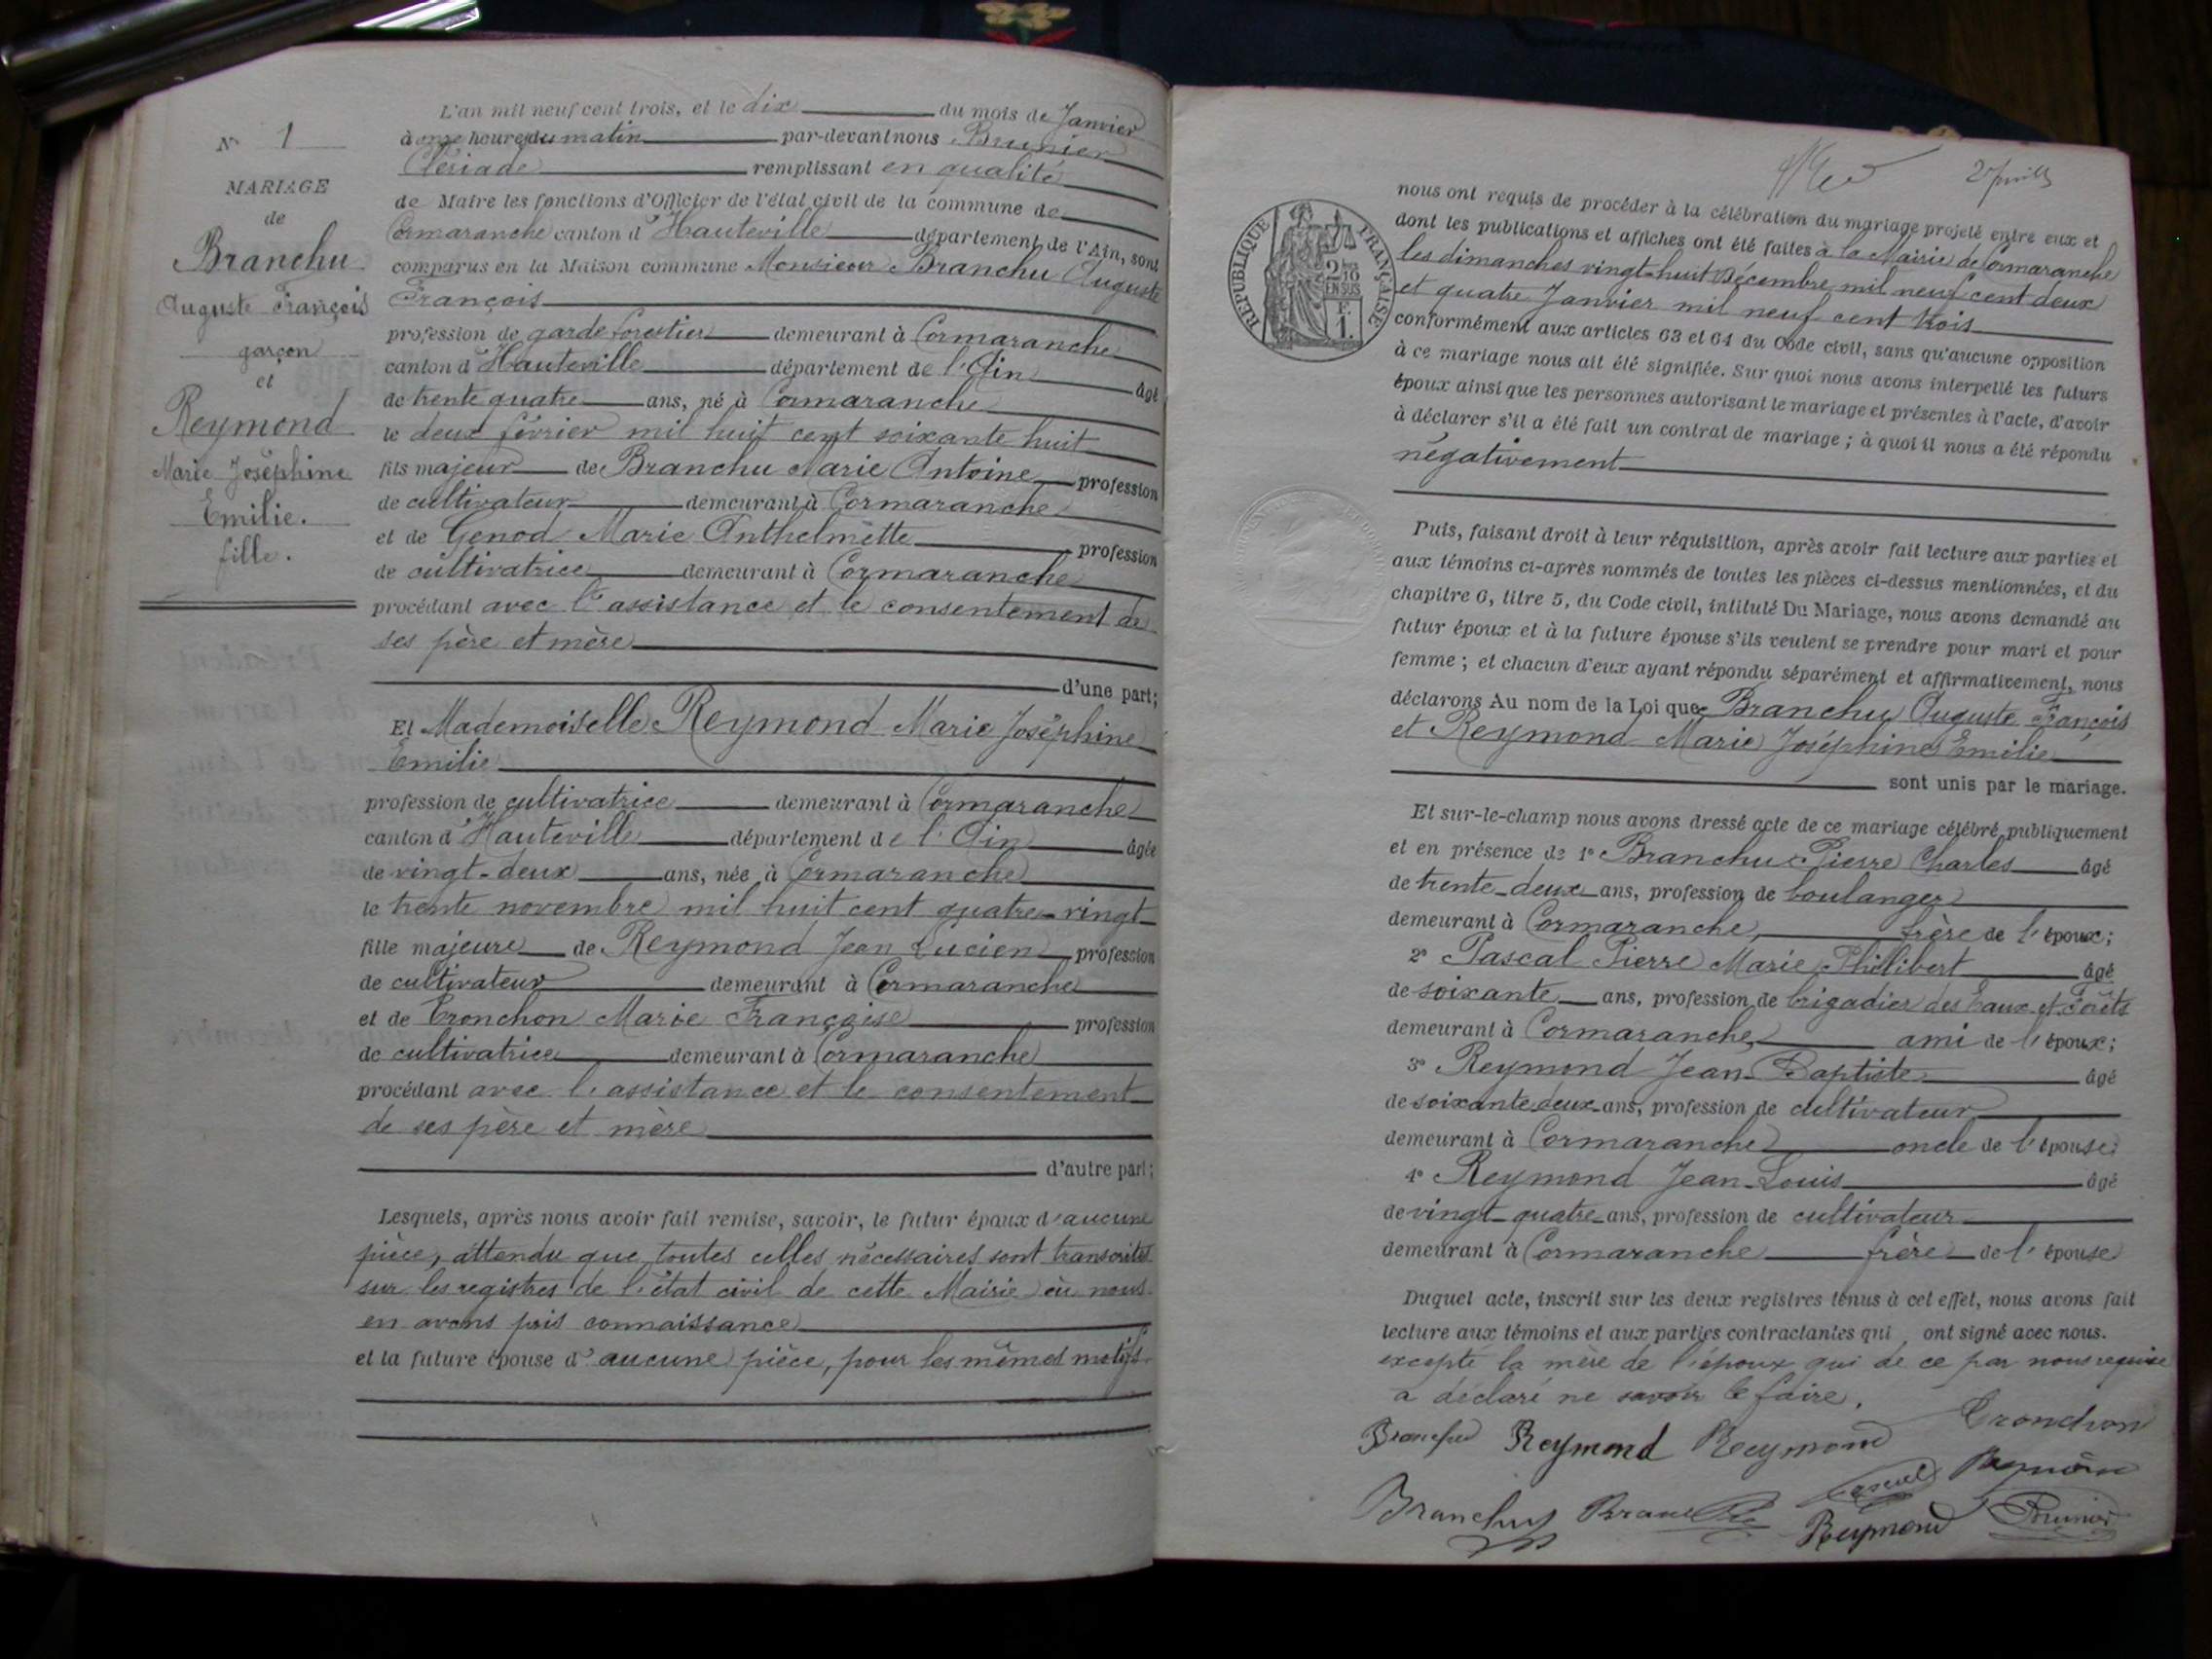 N° 1
MARIAGE
de
Branchu
Auguste François
garçon
et
Reymond
Marie Joséphine
Emilie.
fille.
L'an mil neuf cent trois, et le dix du mois de Janvier
à onze heures du matin par-devant nous Brunier
Clériade remplissant en qualité
de Maire les fonctions d'Officier de l'état civil de la commune de
Cormaranche canton d'Hauteville département de l'Ain, sont
comparus en la Maison commune Monsieur Branchu Auguste
François
profession de garde forestier demeurant à Cormaranche
canton d'Hauteville département de l'Ain âgé
de trente quatre ans, né à Cormaranche
le deux février mil huit cent soixante huit
fils majeur de Branchu Marie Antoine profession
de cultivateur demeurant à Cormaranche
et de Genod Marie Anthelmette profession
de cultivatrice demeurant à Cormaranche
procédant avec l'assistance et le consentement de
ses père et mère
d'une part;
Et Mademoiselle Reymond Marie Joséphine
Emilie
profession de cultivatrice demeurant à Cormaranche
canton d'Hauteville département de l'Ain âgée
de vingt-deux ans, née à Cormaranche
le trente novembre mil huit cent quatre-vingt
fille majeure de Reymond Jean Lucien profession
de cultivateur demeurant à Cormaranche
et de Tronchon Marie Françoise profession
de cultivatrice demeurant à Cormaranche
procédant avec l'assistance et le consentement
de ses père et mère
d'autre part;
Lesquels, après nous avoir fait remise, savoir, le futur époux d'aucune
pièce, attendu que toutes celles nécessaires sont transcrites
sur les registres de l'état civil de cette Mairie où nous
en avons pris connaissance
et la future épouse d'aucune pièce, pour les mêmes motifs
RÉPUBLIQUE FRANÇAISE
2/10
EN SUS
F.
1.
nous ont requis de procéder à la célébration du mariage projeté entre eux et
dont les publications et affiches ont été faites à la Mairie de Cormaranche
les dimanches vingt-huit Décembre mil neuf cent deux
et quatre Janvier mil neuf cent trois
conformément aux articles 63 et 64 du Code civil, sans qu'aucune opposition
à ce mariage nous ait été signifiée. Sur quoi nous avons interpellé les futurs
époux ainsi que les personnes autorisant le mariage et présentes à l'acte, d'avoir
à déclarer s'il a été fait un contrat de mariage; à quoi il nous a été répondu
négativement
Puis, faisant droit à leur réquisition, après avoir fait lecture aux parties et
aux témoins ci-après nommés de toutes les pièces ci-dessus mentionnées, et du
chapitre 6, titre 5, du Code civil, intitulé Du Mariage, nous avons demandé au
futur époux et à la future épouse s'ils veulent se prendre pour mari et pour
femme; et chacun d'eux ayant répondu séparément et affirmativement, nous
déclarons Au nom de la Loi que Branchu Auguste François
et Reymond Marie Joséphine Emilie
sont unis par le mariage.
Et sur-le-champ nous avons dressé acte de ce mariage célébré publiquement
et en présence de 1° Branchu Pierre Charles âgé
de trente-deux ans, profession de boulanger
demeurant à Cormaranche, frère de l'époux;
2° Pascal Pierre Marie Philibert âgé
de soixante ans, profession de brigadier des Eaux et Forêts
demeurant à Cormaranche, ami de l'époux;
3° Reymond Jean-Baptiste âgé
de soixante deux ans, profession de cultivateur
demeurant à Cormaranche oncle de l'épouse;
4° Reymond Jean-Louis âgé
de vingt-quatre ans, profession de cultivateur
demeurant à Cormaranche frère de l'épouse
Duquel acte, inscrit sur les deux registres tenus à cet effet, nous avons fait
lecture aux témoins et aux parties contractantes qui ont signé avec nous.
excepté la mère de l'époux qui de ce par nous requise
a déclaré ne savoir le faire.
Tronchon
Branchu Reymond Reymond
Pascal Reymond
Branchu Branchu Reymond Brunier